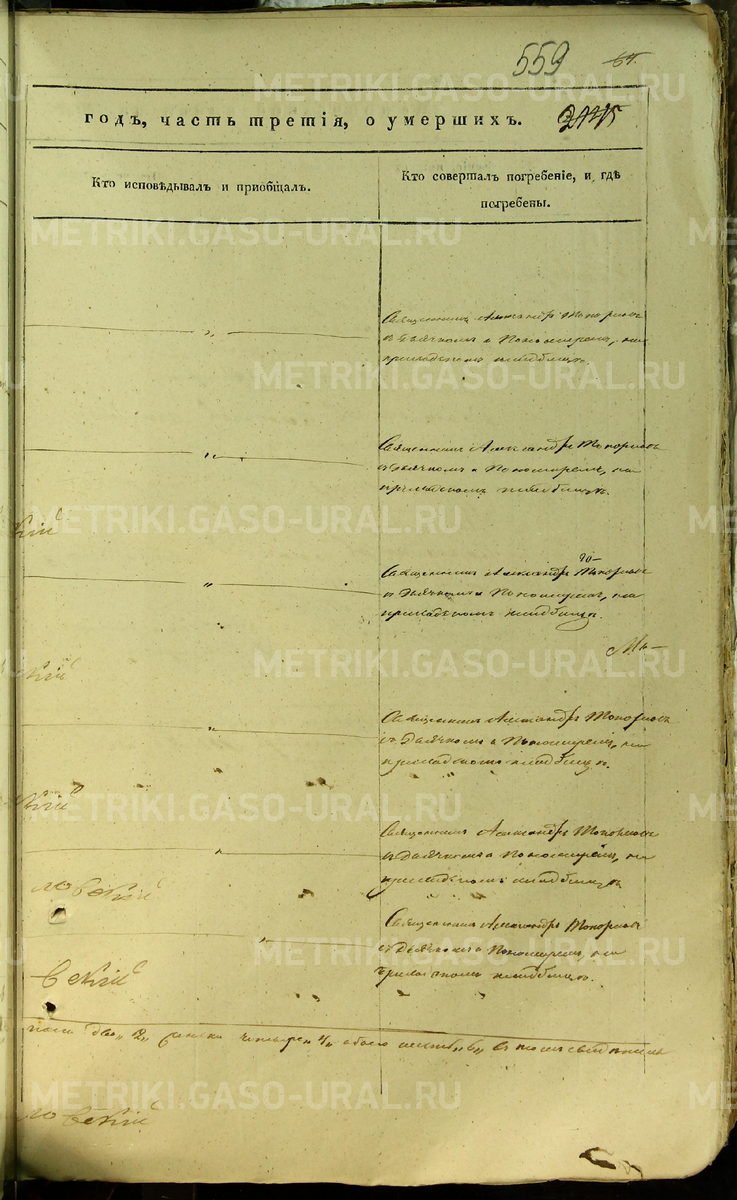 559 64.
годъ, часть третія, о умершихъ. 2445
Кто исповѣдывалъ и пріобщалъ.
Кто совершалъ погребеніе, и гдѣ
погребены.
Священникъ Александръ Топорковъ
съ Дьячкомъ и Пономаремъ, на
приходскомъ кладбищѣ.
Священникъ Александръ Топорковъ
съ Дьячкомъ и Пономаремъ, на
приходскомъ кладбищѣ.
Священникъ Александръ Топорковъ
съ Дьячкомъ и Пономаремъ, на
приходскомъ кладбищѣ.
Священникъ Александръ Топорковъ
съ Дьячкомъ и Пономаремъ, на
приходскомъ кладбищѣ.
Священникъ Александръ Топорковъ
съ Дьячкомъ и Пономаремъ, на
приходскомъ кладбищѣ.
Священникъ Александръ Топорковъ
съ Дьячкомъ и Пономаремъ, на
приходскомъ кладбищѣ.
два 2, женска четыре 4, обоего шесть 6, въ томъ
METRIKI.GASO-URAL.RU